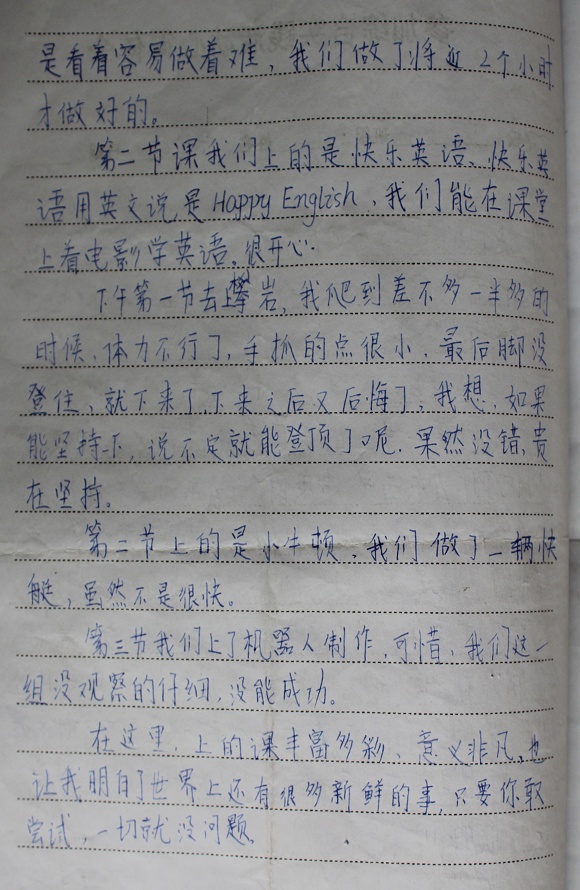 是看着容易做着难，我们做了将近2个小时
才做好的。
第二节课我们上的是快乐英语、快乐英
语用英文说是Happy English，我们能在课堂
上看电影学英语。很开心.
下午第一节去攀岩，我爬到差不多一半多的
时候，体力不行了，手抓的点很小，最后脚没
登住，就下来了，下来之后又后悔了，我想，如果
能坚持一下，说不定就能登顶了呢.果然没错，贵
在坚持。
第二节上的是小牛顿，我们做了一辆快
艇，虽然不是很快。
第三节我们上了机器人制作，可惜，我们这一
组没观察的仔细，没能成功。
在这里，上的课丰富多彩、意义非凡，也
让我明白了世界上还有很多新鲜的事，只要你敢
尝试，一切就没问题。